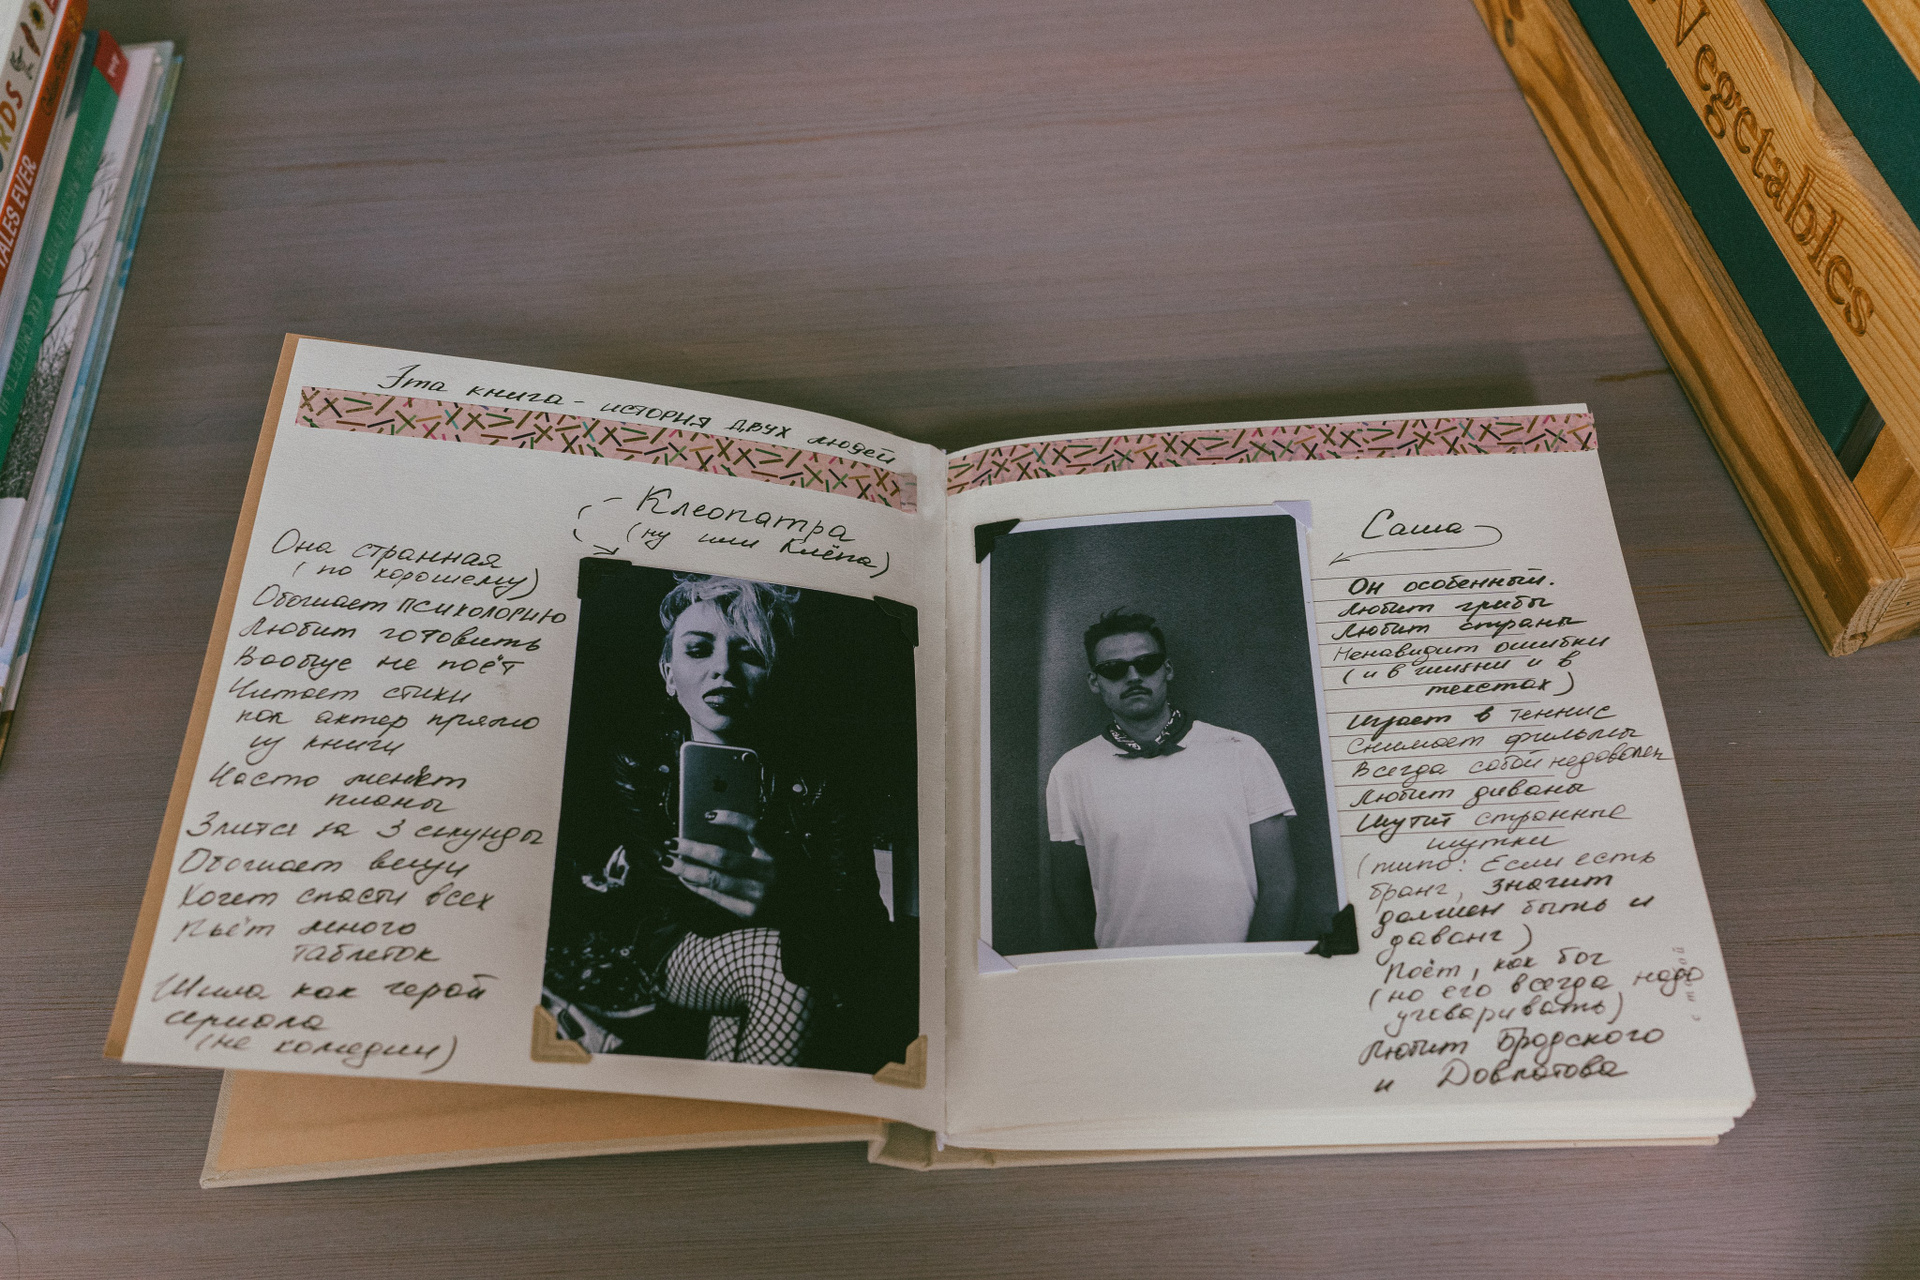 Эта книга - история двух людей
Клеопатра
(ну или Клёпа)
Она странная
(по хорошему)
Обожает психологию
Любит готовить
Вообще не поёт
Читает стихи
как актер прямо
из книги
Часто меняет
планы
Злится за 3 секунды
Обожает вещи
Хочет спасти всех
Пьёт много
таблеток
Жила как герой
сериала
(не комедии)
Саша
Он особенный.
Любит грибы
Любит страны
Ненавидит ошибки
(и в жизни и в
текстах)
Играет в теннис
Снимает фильмы
Всегда собой недоволен
Любит диваны
Шутит странные
шутки
(типо: Если есть
бранч, значит
должен быть и
даванч)
Поёт, как бог
(но его всегда надо
уговаривать)
Любит Бродского
и Довлатова
RDS
TALES EVER
Vegetables